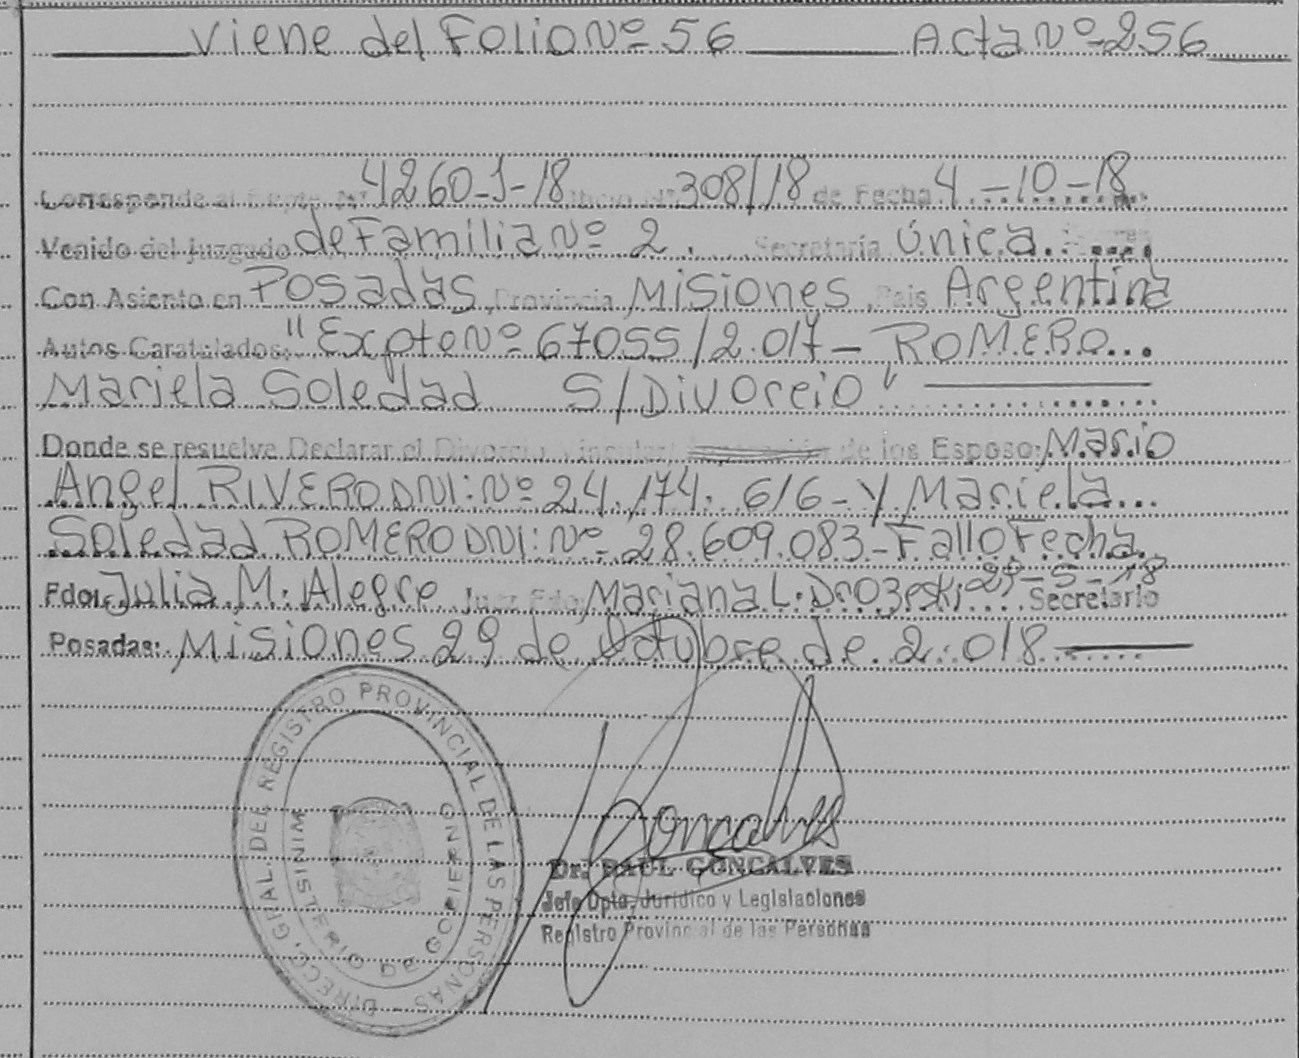 Viene del Folio Nº 56 Acta Nº 256
Corresponde al Expte. Nº 4260-J-18 Nº 308/18 de Fecha 4-10-18
Venido del Juzgado de Familia Nº 2. Secretaría Única.
Con Asiento en Posadas, Provincia Misiones, Pais Argentina
Autos Caratulados: "Expte Nº 67055/2.017 - ROMERO
Mariela Soledad S/Divorcio"
Donde se resuelve Declarar el Divorcio Vincular de los Esposo: Mario
Angel RIVERO DNI: Nº 24.174.616 - y Mariela
Soledad ROMERO DNI: Nº 28.609.083 - Fallo Fecha
29-5-18
Fdo: Julia M. Alegre Juez Fdo: Mariana L. Drozeski Secretario
Posadas: Misiones 29 de Octubre de 2.018
DIRECC. GRAL. DEL REGISTRO PROVINCIAL DE LAS PERSONAS
MINISTERIO DE GOBIERNO
Goncalves
Dr. RAUL GONCALVES
Jefe Dpto. Jurídico y Legislaciones
Registro Provincial de las Personas